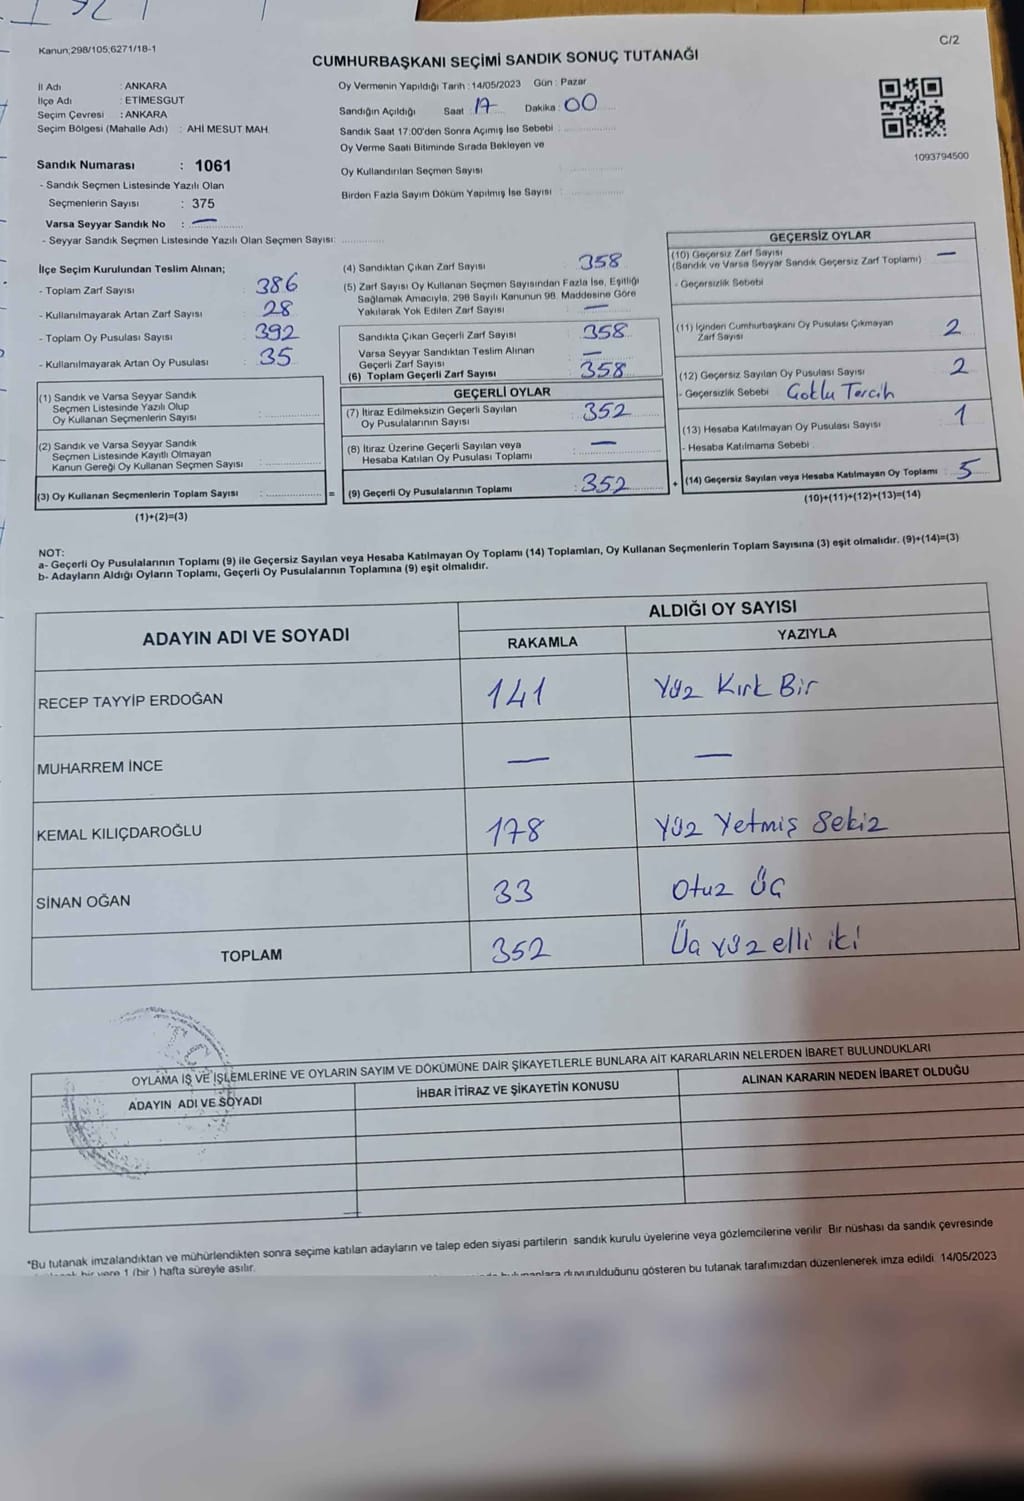 Kanun;298/105;6271/18-1
C/2
CUMHURBAŞKANI SEÇİMİ SANDIK SONUÇ TUTANAĞI
İl Adı : ANKARA
İlçe Adı : ETİMESGUT
Seçim Çevresi : ANKARA
Seçim Bölgesi (Mahalle Adı) : AHİ MESUT MAH.
Oy Vermenin Yapıldığı Tarih : 14/05/2023 Gün : Pazar
Sandığın Açıldığı Saat : 17 Dakika : 00
Sandık Saat 17:00'den Sonra Açımış İse Sebebi :
Oy Verme Saati Bitiminde Sırada Bekleyen ve
Oy Kullandırılan Seçmen Sayısı
Birden Fazla Sayım Döküm Yapılmış İse Sayısı :
1093794500
Sandık Numarası : 1061
- Sandık Seçmen Listesinde Yazılı Olan
Seçmenlerin Sayısı : 375
Varsa Seyyar Sandık No : —
- Seyyar Sandık Seçmen Listesinde Yazılı Olan Seçmen Sayısı:
İlçe Seçim Kurulundan Teslim Alınan;
- Toplam Zarf Sayısı : 386
- Kullanılmayarak Artan Zarf Sayısı : 28
- Toplam Oy Pusulası Sayısı : 392
- Kullanılmayarak Artan Oy Pusulası : 35
(1) Sandık ve Varsa Seyyar Sandık
Seçmen Listesinde Yazılı Olup
Oy Kullanan Seçmenlerin Sayısı :
(2) Sandık ve Varsa Seyyar Sandık
Seçmen Listesinde Kayıtlı Olmayan
Kanun Gereği Oy Kullanan Seçmen Sayısı :
(3) Oy Kullanan Seçmenlerin Toplam Sayısı : =
(1)+(2)=(3)
(4) Sandıktan Çıkan Zarf Sayısı 358
(5) Zarf Sayısı Oy Kullanan Seçmen Sayısından Fazla İse, Eşitliği
Sağlamak Amacıyla, 298 Sayılı Kanunun 98. Maddesine Göre
Yakılarak Yok Edilen Zarf Sayısı —
Sandıkta Çıkan Geçerli Zarf Sayısı : 358
Varsa Seyyar Sandıktan Teslim Alınan
Geçerli Zarf Sayısı : —
(6) Toplam Geçerli Zarf Sayısı : 358
GEÇERLİ OYLAR
(7) İtiraz Edilmeksizin Geçerli Sayılan
Oy Pusulalarının Sayısı : 352
(8) İtiraz Üzerine Geçerli Sayılan veya
Hesaba Katılan Oy Pusulası Toplamı : —
(9) Geçerli Oy Pusulalarının Toplamı : 352 +
GEÇERSİZ OYLAR
(10) Geçersiz Zarf Sayısı
(Sandık ve Varsa Seyyar Sandık Geçersiz Zarf Toplamı) —
- Geçersizlik Sebebi
(11) İçinden Cumhurbaşkanı Oy Pusulası Çıkmayan
Zarf Sayısı 2
(12) Geçersiz Sayılan Oy Pusulası Sayısı 2
- Geçersizlik Sebebi Çoklu Tercih
(13) Hesaba Katılmayan Oy Pusulası Sayısı 1
- Hesaba Katılmama Sebebi
(14) Geçersiz Sayılan veya Hesaba Katılmayan Oy Toplamı : 5
(10)+(11)+(12)+(13)=(14)
NOT:
a- Geçerli Oy Pusulalarının Toplamı (9) ile Geçersiz Sayılan veya Hesaba Katılmayan Oy Toplamı (14) Toplamları, Oy Kullanan Seçmenlerin Toplam Sayısına (3) eşit olmalıdır. (9)+(14)=(3)
b- Adayların Aldığı Oyların Toplamı, Geçerli Oy Pusulalarının Toplamına (9) eşit olmalıdır.
ADAYIN ADI VE SOYADI
ALDIĞI OY SAYISI
RAKAMLA YAZIYLA
RECEP TAYYİP ERDOĞAN 141 Yüz Kırk Bir
MUHARREM İNCE — —
KEMAL KILIÇDAROĞLU 178 Yüz Yetmiş Sekiz
SİNAN OĞAN 33 Otuz Üç
TOPLAM 352 Üç yüz elli iki
T.C.
OYLAMA İŞ VE İŞLEMLERİNE VE OYLARIN SAYIM VE DÖKÜMÜNE DAİR ŞİKAYETLERLE BUNLARA AİT KARARLARIN NELERDEN İBARET BULUNDUKLARI
ADAYIN ADI VE SOYADI İHBAR İTİRAZ VE ŞİKAYETİN KONUSU ALINAN KARARIN NEDEN İBARET OLDUĞU
*Bu tutanak imzalandıktan ve mühürlendikten sonra seçime katılan adayların ve talep eden siyasi partilerin sandık kurulu üyelerine veya gözlemcilerine verilir. Bir nüshası da sandık çevresinde
bir yere 1 (bir ) hafta süreyle asılır.
duyurulduğunu gösteren bu tutanak tarafımızdan düzenlenerek imza edildi. 14/05/2023